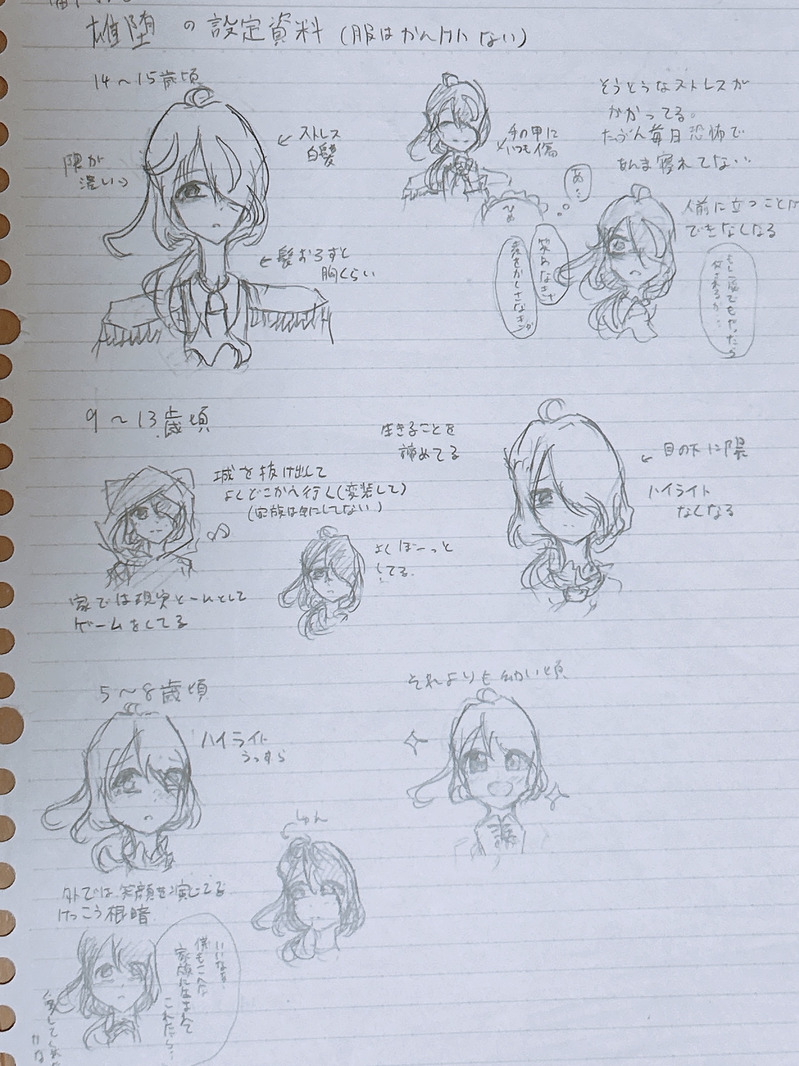 雄堕の設定資料(服はかんけいない)
14〜15歳頃
隈が
濃い
←ストレス
白髪
←髪おろすと
胸くらい
手の甲に
いつも傷
そうとうなストレスが
かかってる。
たぶん毎日恐怖で
あんま寝れてない
あ…
笑わなきゃ
人前に立つことが
できなくなる
9〜13歳頃
城を抜け出して
よくどこかへ行く(変装して)
(家族は気にしてない)
よくぼーっと
してる
家では現実とームとして
ゲームをしてる
生きることを
諦めてる
←目の下に隈
ハイライト
なくなる
5〜8歳頃
ハイライト
うっすら
しゅん
外では笑顔を演じてる
けっこう根暗
いいなぁ
僕もこんな
家族に生まれて
これたら…
それよりも幼い頃